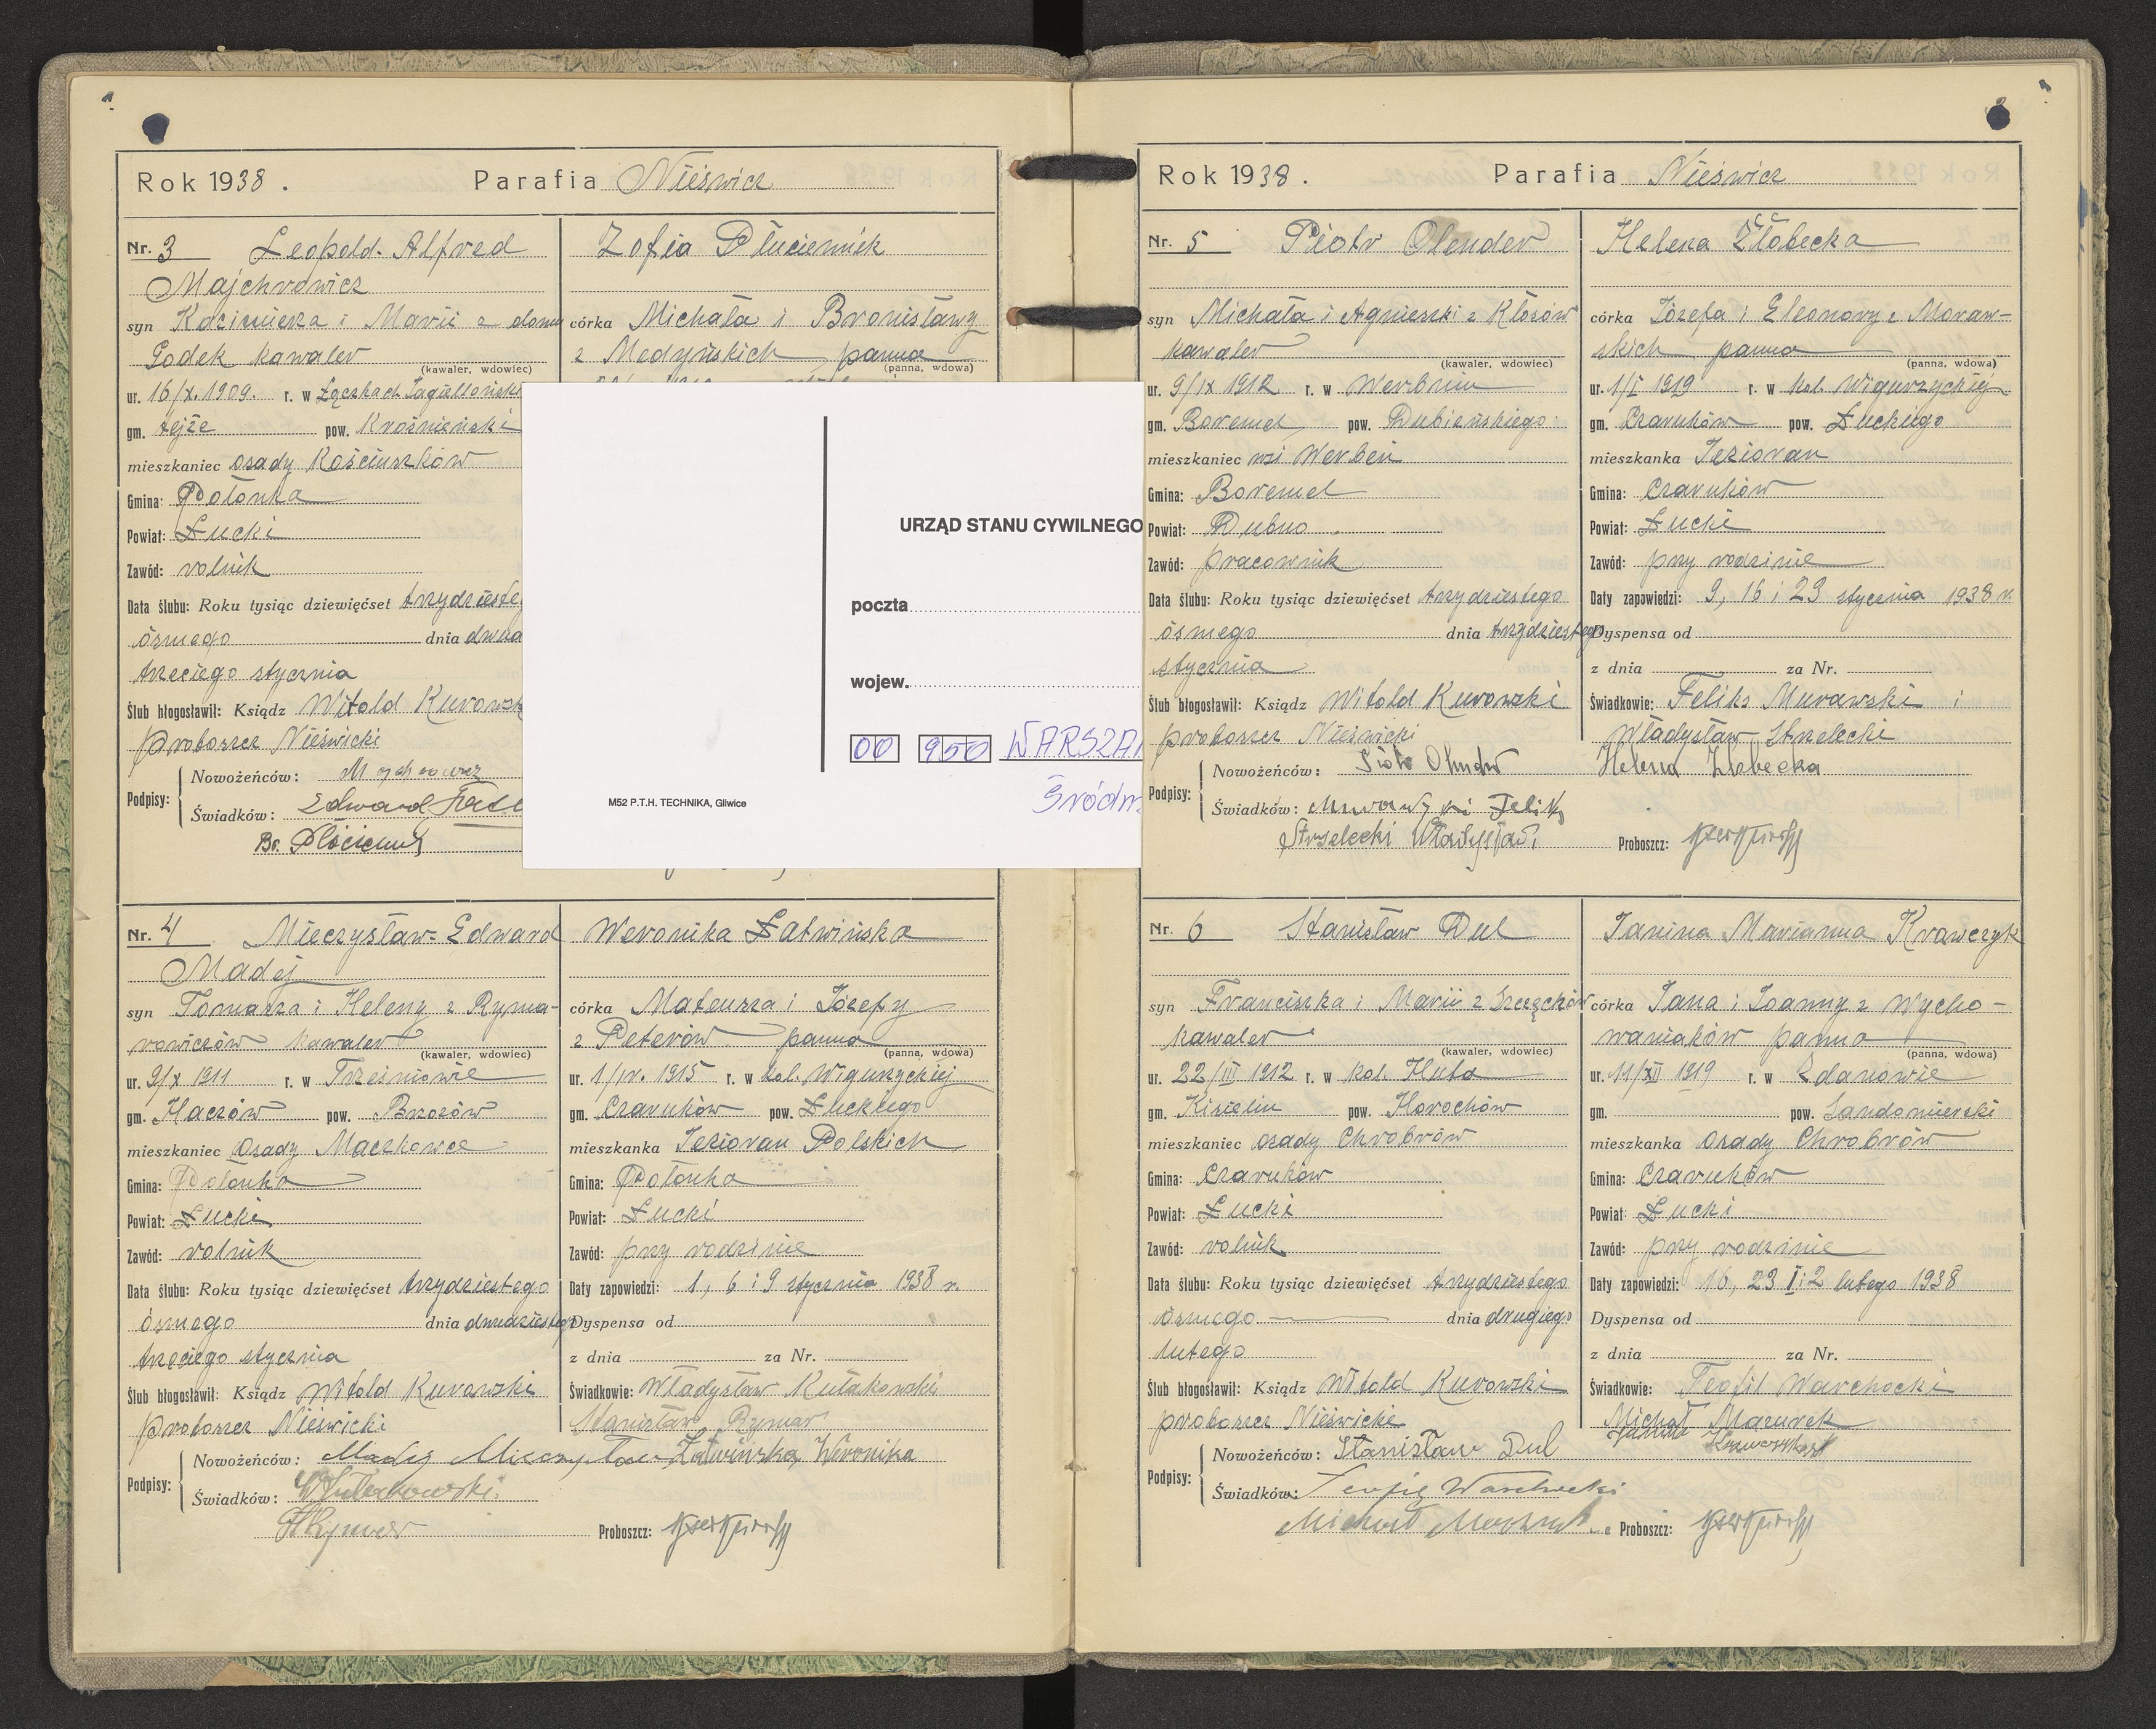 Rok 1938. Parafia Nieświcz
Nr. 3 Leopold-Alfred
Majchrowicz
syn Kazimierza i Marii z domu
Godek kawaler
(kawaler, wdowiec)
ur. 16/X. 1909. r. w Łączkach Jagielloński
gm. tejże pow. Krośnieński
mieszkaniec osady Kościuszków
Gmina: Połonka
Powiat: Łucki
Zawód: rolnik
Data ślubu: Roku tysiąc dziewięćset trzydziesteg
ósmego dnia dwud
trzeciego stycznia
Ślub błogosławił: Ksiądz Witold Kurowsk
proboszcz Nieświcki
Podpisy: Nowożeńców:
Świadków: Edward
Br.
Zofia Płuciennik
córka Michała i Bronisławy
z Medyńskich panna
(panna, wdowa)
URZĄD STANU CYWILNEGO
poczta
wojew.
00 950 WARSZA
Śródm
M52 P.T.H. TECHNIKA, Gliwice
Nr. 4 Mieczysław-Edward
Madej
syn Tomasza i Heleny z Ryma-
rowiczów kawaler
(kawaler, wdowiec)
ur. 9/X 1911 r. w Trześniowie
gm. Haczów pow. Brzozów
mieszkaniec Osady Maczkowce
Gmina: Połonka
Powiat: Łucki
Zawód: rolnik
Data ślubu: Roku tysiąc dziewięćset trzydziestego
ósmego dnia dwudziestego
trzeciego stycznia
Ślub błogosławił: Ksiądz Witold Kurowski
proboszcz Nieświcki
Weronika Łatwińska
córka Mateusza i Józefy
z Peterów panna
(panna, wdowa)
ur. 1/IV. 1915 r. w kol. Wiguryckiej
gm. Czaruków pow. Łuckiego
mieszkanka Jezioran Polskich
Gmina: Połonka
Powiat: Łucki
Zawód: przy rodzinie
Daty zapowiedzi: 1, 6 i 9 stycznia 1938 r.
Dyspensa od
z dnia za Nr.
Świadkowie: Władysław Kułakowski
Stanisław Rymar
Podpisy: Nowożeńców: Madej Mieczysław Łatwińska Weronika
Świadków: W Kułakowski
St Rymar
Proboszcz:
Rok 1938. Parafia Nieświcz
Nr. 5 Piotr Olender
syn Michała i Agnieszki z Kłosów
kawaler
(kawaler, wdowiec)
ur. 9/IX 1912 r. w Werbniu
gm. Boremel pow. Dubieńskiego
mieszkaniec wsi Werbeń
Gmina: Boremel
Powiat: Dubno
Zawód: pracownik
Data ślubu: Roku tysiąc dziewięćset trzydziestego
ósmego dnia trzydziestego
stycznia
Ślub błogosławił: Ksiądz Witold Kurowski
proboszcz Nieświcki
Helena Żłobecka
córka Józefa i Eleonory z Moraw-
skich panna
(panna, wdowa)
ur. 1/I 1919 r. w kol. Wiguryckiej
gm. Czaruków pow. Łuckiego
mieszkanka Jezioran
Gmina: Czaruków
Powiat: Łucki
Zawód: przy rodzinie
Daty zapowiedzi: 9, 16 i 23 stycznia 1938 r.
Dyspensa od
z dnia za Nr.
Świadkowie: Feliks Murawski i
Władysław Strzelecki
Podpisy: Nowożeńców: Piotr Olender Helena Żłobecka
Świadków: Murawski Feliks
Strzelecki Władysław
Proboszcz:
Nr. 6 Stanisław Dul
syn Franciszka i Marii z Szczęchów
kawaler
(kawaler, wdowiec)
ur. 22/III 1912 r. w kol. Huta
gm. Kisielin pow. Horochów
mieszkaniec osady Chrobrów
Gmina: Czaruków
Powiat: Łucki
Zawód: rolnik
Data ślubu: Roku tysiąc dziewięćset trzydziestego
ósmego dnia drugiego
lutego
Ślub błogosławił: Ksiądz Witold Kurowski
proboszcz Nieświcki
Janina Marianna Krawczyk
córka Jana i Joanny z Wycho-
waniaków panna
(panna, wdowa)
ur. 11/XII 1919 r. w Zdanowie
gm. pow. Sandomierski
mieszkanka osady Chrobrów
Gmina: Czaruków
Powiat: Łucki
Zawód: przy rodzinie
Daty zapowiedzi: 16, 23 I i 2 lutego 1938
Dyspensa od
z dnia za Nr.
Świadkowie: Teofil Warchocki
Michał Mazurek
Podpisy: Nowożeńców: Stanisław Dul Janina
Świadków: Teofil Warchocki
Michał Mazurek
Proboszcz: